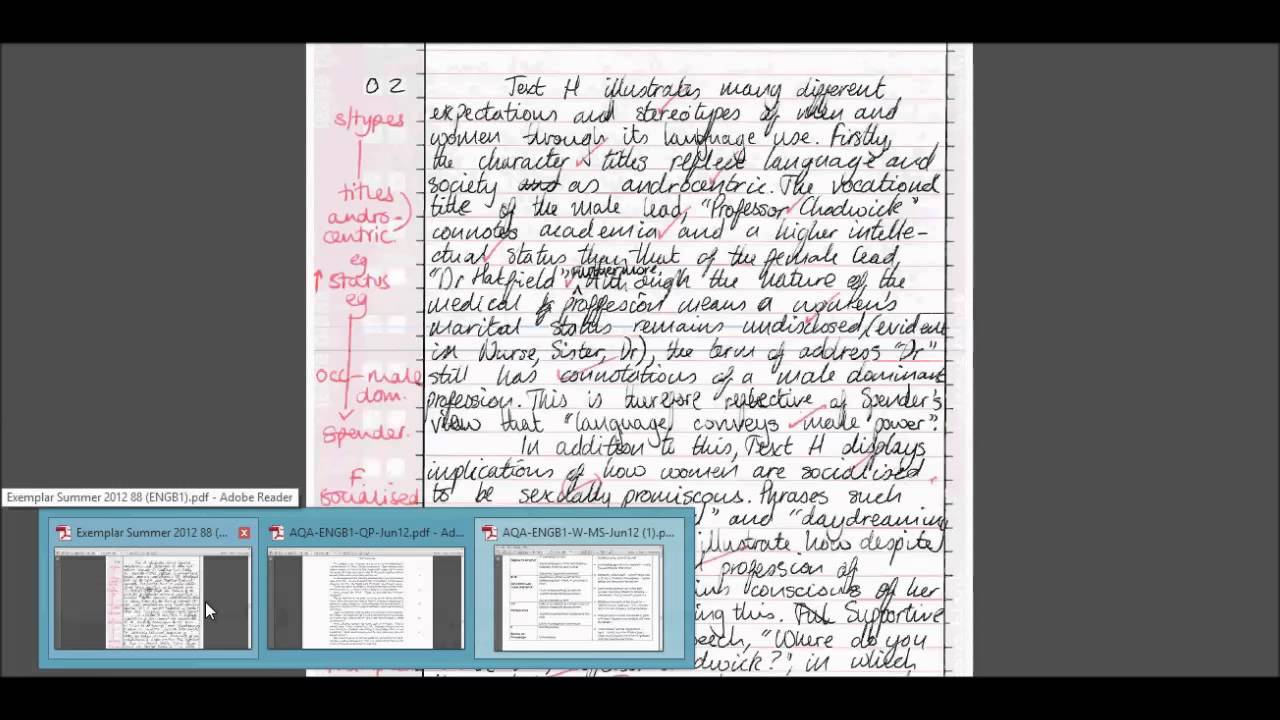 02
Text H illustrates many different
expectations and stereotypes of men and
women through its language use. Firstly,
the character titles reflect language and
society and as androcentric. The vocational
title of the male lead, "Professor Chadwick"
connotes academia and a higher intelle-
ctual status than that of the female lead,
"Dr Hatfield". Furthermore, Although the nature of the
medical profession means a women's
marital status remains undisclosed, (evident
in Nurse, Sister, Dr), the term of address "Dr"
still has connotations of a male dominant
profession. This is therefore reflective of Spender's
view that "language conveys male power".
In addition to this, Text H displays
implications of how women are socialised
to be sexually promiscous. Phrases such
" and "daydreaming
illustrate how despite
profession of
conscious of her
this. The supportive
"Where do you
wick?", in which
s/types
titles
andro-
centric.
eg
↑ status
eg
occ - male
dom.
Spender.
F.
socialised
Exemplar Summer 2012 88 (ENGB1).pdf - Adobe Reader
Exemplar Summer 2012 88 (...
AQA-ENGB1-QP-Jun12.pdf - Ad...
AQA-ENGB1-W-MS-Jun12 (1).p...